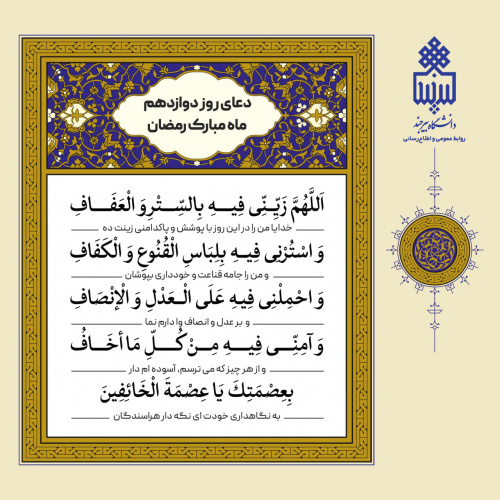 دعای روز دوازدهم
ماه مبارک رمضان
اَللَّهُمَّ زَيِّنِّى فِيهِ بِالسِّتْرِ وَ الْعَفَافِ
خدایا من را در این روز با پوشش و پاکدامنی زینت ده
وَ اسْتُرْنِى فِيهِ بِلِبَاسِ الْقُنُوعِ وَ الْكَفَافِ
و من را جامه قناعت و خودداری بپوشان
وَ احْمِلْنِى فِيهِ عَلَى الْعَدْلِ وَ الْإِنْصَافِ
و بر عدل و انصاف وادارم نما
وَ آمِنِّى فِيهِ مِنْ كُلِّ مَا أَخَافُ
و از هر چیز که می ترسم، آسوده ام دار
بِعِصْمَتِكَ يَا عِصْمَةَ الْخَائِفِينَ
به نگاهداری خودت ای نگه دار هراسندگان
دانشگاه بیرجند
روابط عمومی و اطلاع رسانی